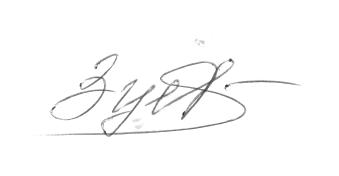 Зуев